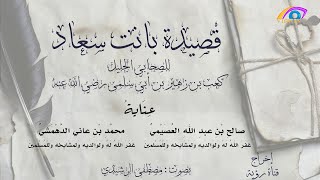 قصيدة بانت سعاد
للصحابي الجليل
كعب بن زهير بن أبي سلمى رضي الله عنه
عناية
صالح بن عبد الله العصيمي
غفر الله له ولوالديه ولمشايخه وللمسلمين
محمد بن عاني الدهمشي
غفر الله له ولوالديه ولمشايخه وللمسلمين
بصوت: مصطفى الرشيدي
إخراج
قناة رؤية